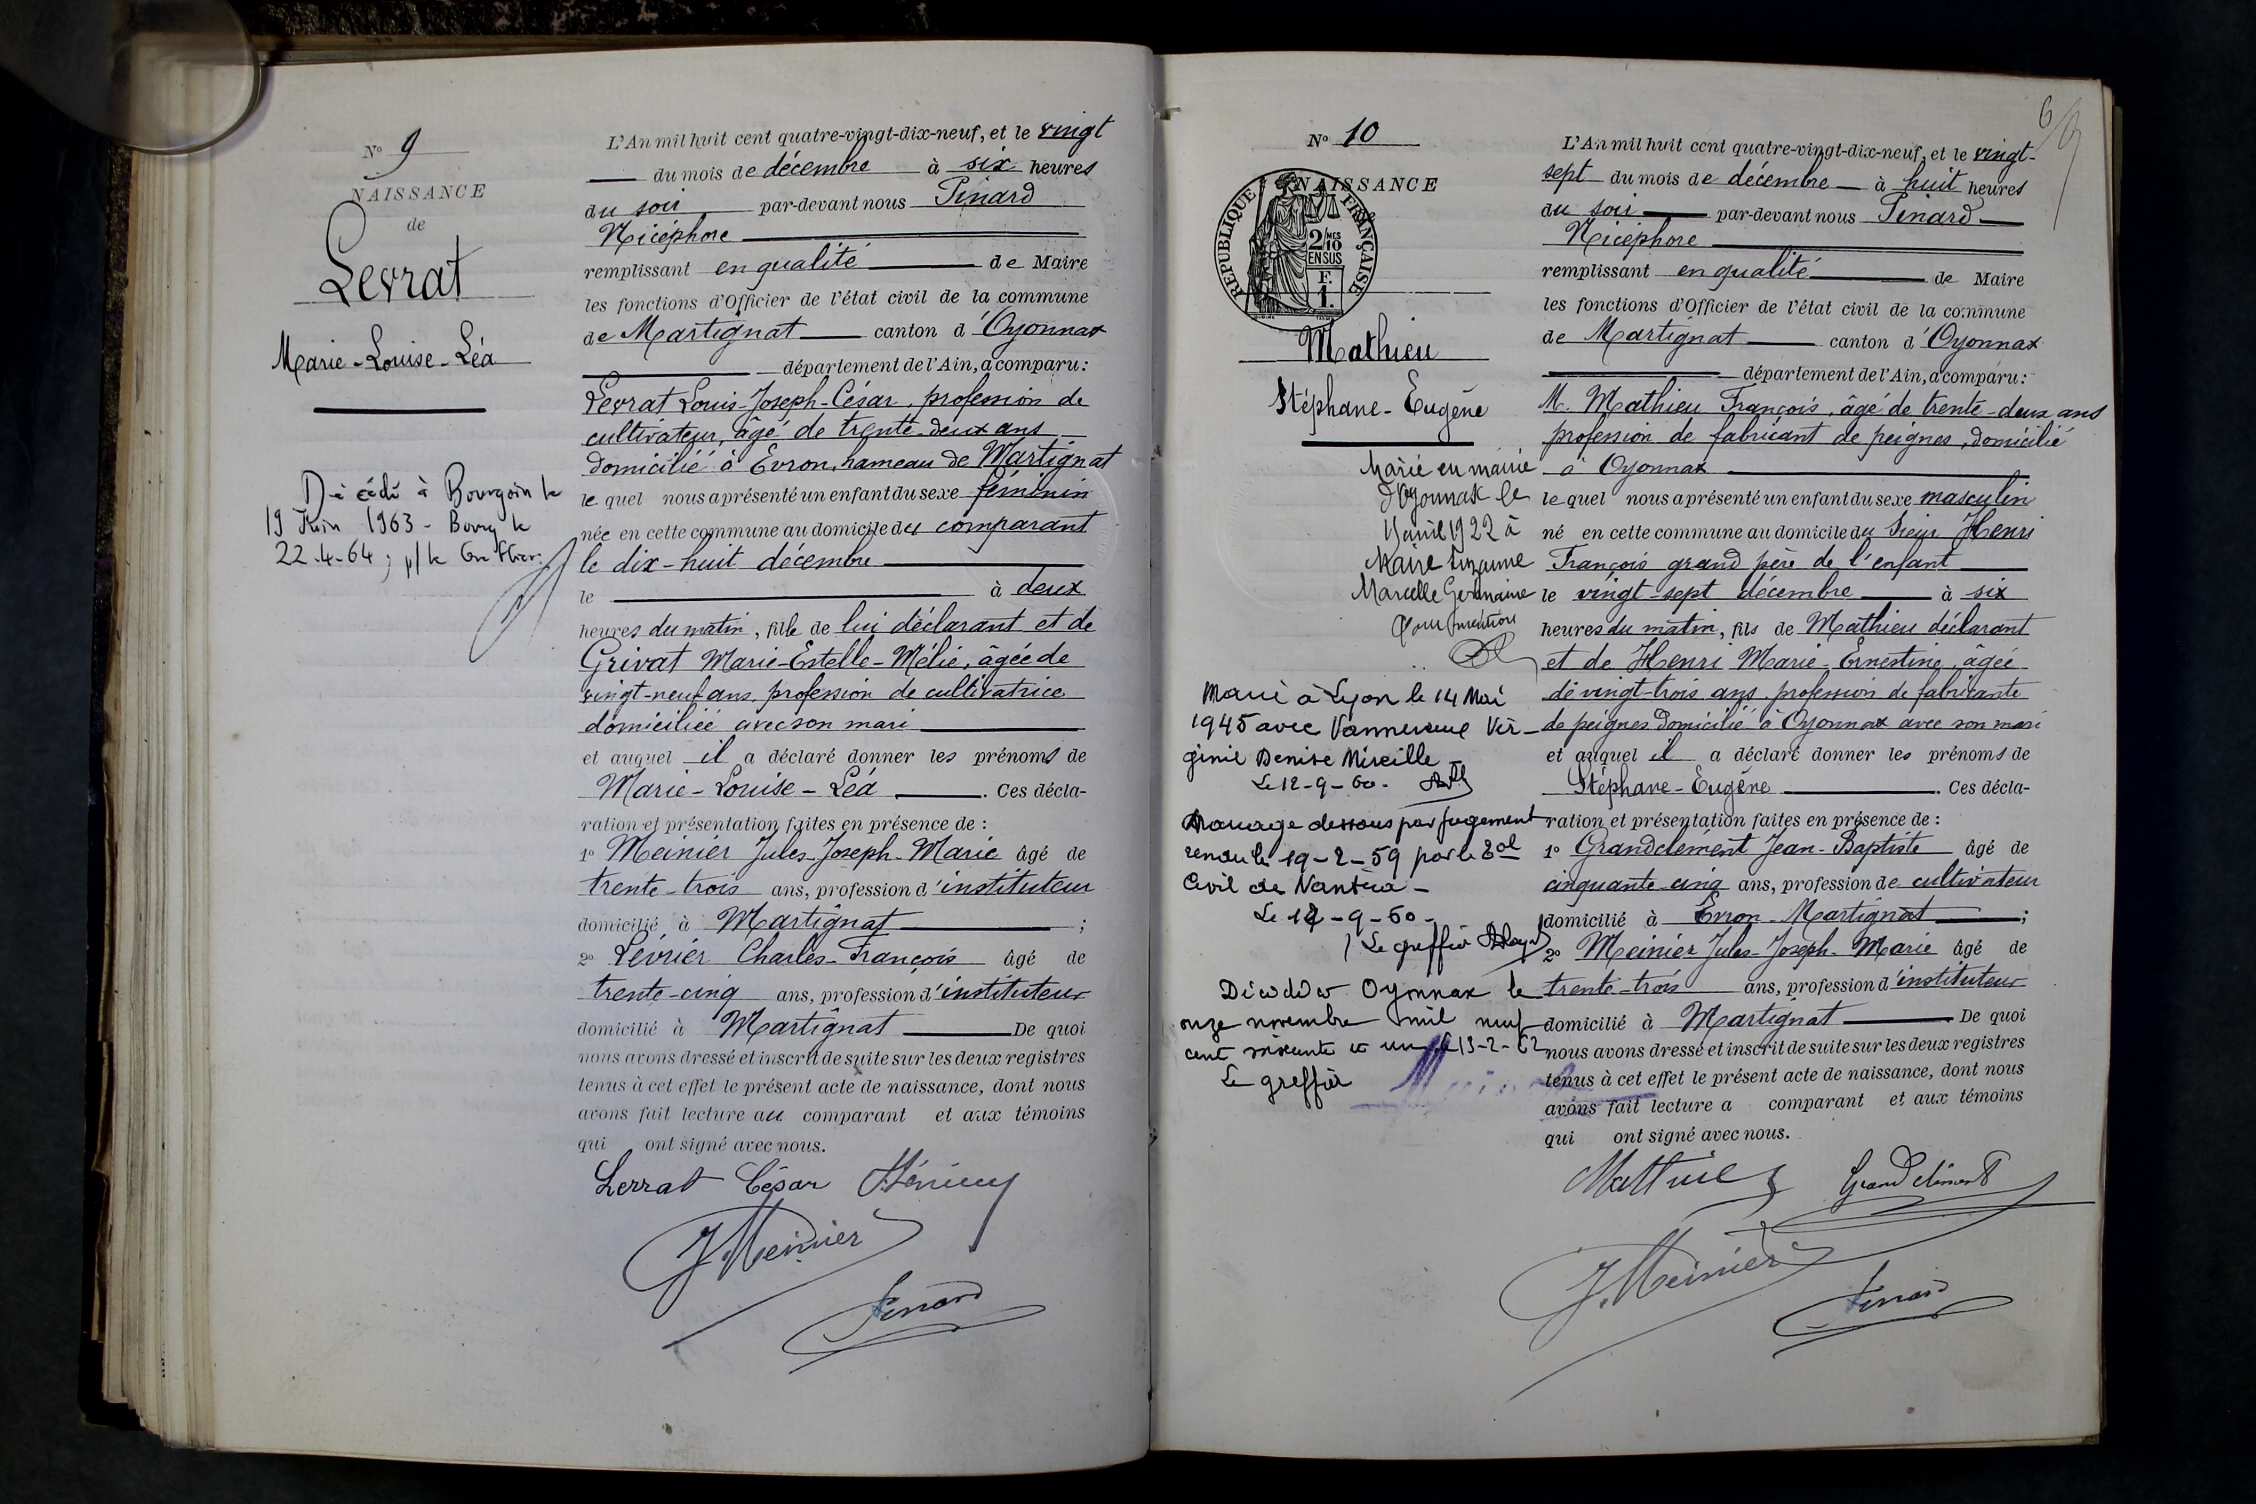 N° 9
NAISSANCE
de
Levrat
Marie-Louise-Léa
Décédé à Bourgoin le
19 Juin 1963 - Bourg le
22-4-64 ; p/ le Greffier:
L'An mil huit cent quatre-vingt-dix-neuf, et le vingt
du mois de décembre à six heures
du soir par-devant nous Pinard
Nicéphore
remplissant en qualité de Maire
les fonctions d'Officier de l'état civil de la commune
de Martignat canton d'Oyonnax
département de l'Ain, a comparu:
Levrat Louis-Joseph-César, profession de
cultivateur, âgé de trente-deux ans
domicilié à Evron, hameau de Martignat
le quel nous a présenté un enfant du sexe féminin
née en cette commune au domicile du comparant
le dix-huit décembre
le à deux
heures du matin, fille de lui déclarant et de
Grivat Marie-Estelle-Mélie, âgée de
vingt-neuf ans, profession de cultivatrice
domiciliée avec son mari
et auquel il a déclaré donner les prénoms de
Marie-Louise-Léa. Ces décla-
ration et présentation faites en présence de :
1° Meinier Jules-Joseph-Marie âgé de
trente-trois ans, profession d'instituteur
domicilié à Martignat ;
2° Lévrier Charles-François âgé de
trente-cinq ans, profession d'instituteur
domicilié à Martignat De quoi
nous avons dressé et inscrit de suite sur les deux registres
tenus à cet effet le présent acte de naissance, dont nous
avons fait lecture au comparant et aux témoins
qui ont signé avec nous.
Levrat César
J. Meinier
Pinard
6
N° 10
NAISSANCE
RÉPUBLIQUE FRANÇAISE
2/10 MES
EN SUS
F.
1.
Mathieu
Stéphane-Eugène
Marié en mairie
d'Oyonnax le
1 avril 1922 à
Maire Suzanne
Marcelle Germaine
Pour mention
Marié à Lyon le 14 Mai
1945 avec Vir-
ginie Denise Mireille
Le 12-9-60.
Mariage dessous par jugement
rendu le 19-2-59 par le Bal
Civil de Nantua -
Le 12-9-60 -
Le greffier
Décédé à Oyonnax le
onze novembre mil neuf
cent soixante et un le 13-2-62
Le greffier
L'An mil huit cent quatre-vingt-dix-neuf, et le vingt-
sept du mois de décembre à huit heures
du soir par-devant nous Pinard
Nicéphore
remplissant en qualité de Maire
les fonctions d'Officier de l'état civil de la commune
de Martignat canton d'Oyonnax
département de l'Ain, a comparu:
M. Mathieu François, âgé de trente-deux ans
profession de fabricant de peignes, domicilié
à Oyonnax
le quel nous a présenté un enfant du sexe masculin
né en cette commune au domicile du Sieur Henri
François grand père de l'enfant
le vingt-sept décembre à six
heures du matin, fils de Mathieu déclarant
et de Henri Marie-Ernestine, âgée
de vingt-trois ans, profession de fabricante
de peignes, domicilié à Oyonnax avec son mari
et auquel il a déclaré donner les prénoms de
Stéphane-Eugène. Ces décla-
ration et présentation faites en présence de :
1° Grandclément Jean-Baptiste âgé de
cinquante-cinq ans, profession de cultivateur
domicilié à Evron-Martignat ;
2° Meinier Jules-Joseph-Marie âgé de
trente-trois ans, profession d'instituteur
domicilié à Martignat De quoi
nous avons dressé et inscrit de suite sur les deux registres
tenus à cet effet le présent acte de naissance, dont nous
avons fait lecture a comparant et aux témoins
qui ont signé avec nous.
Mathieu Grandclément
J. Meinier
Pinard